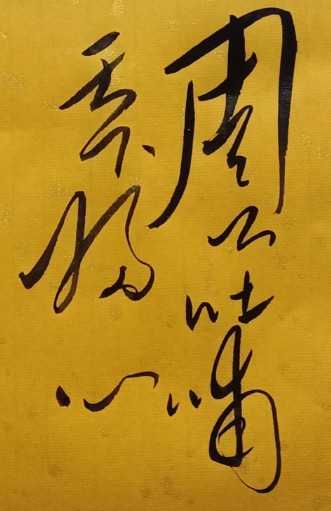 周公吐哺
天下归心